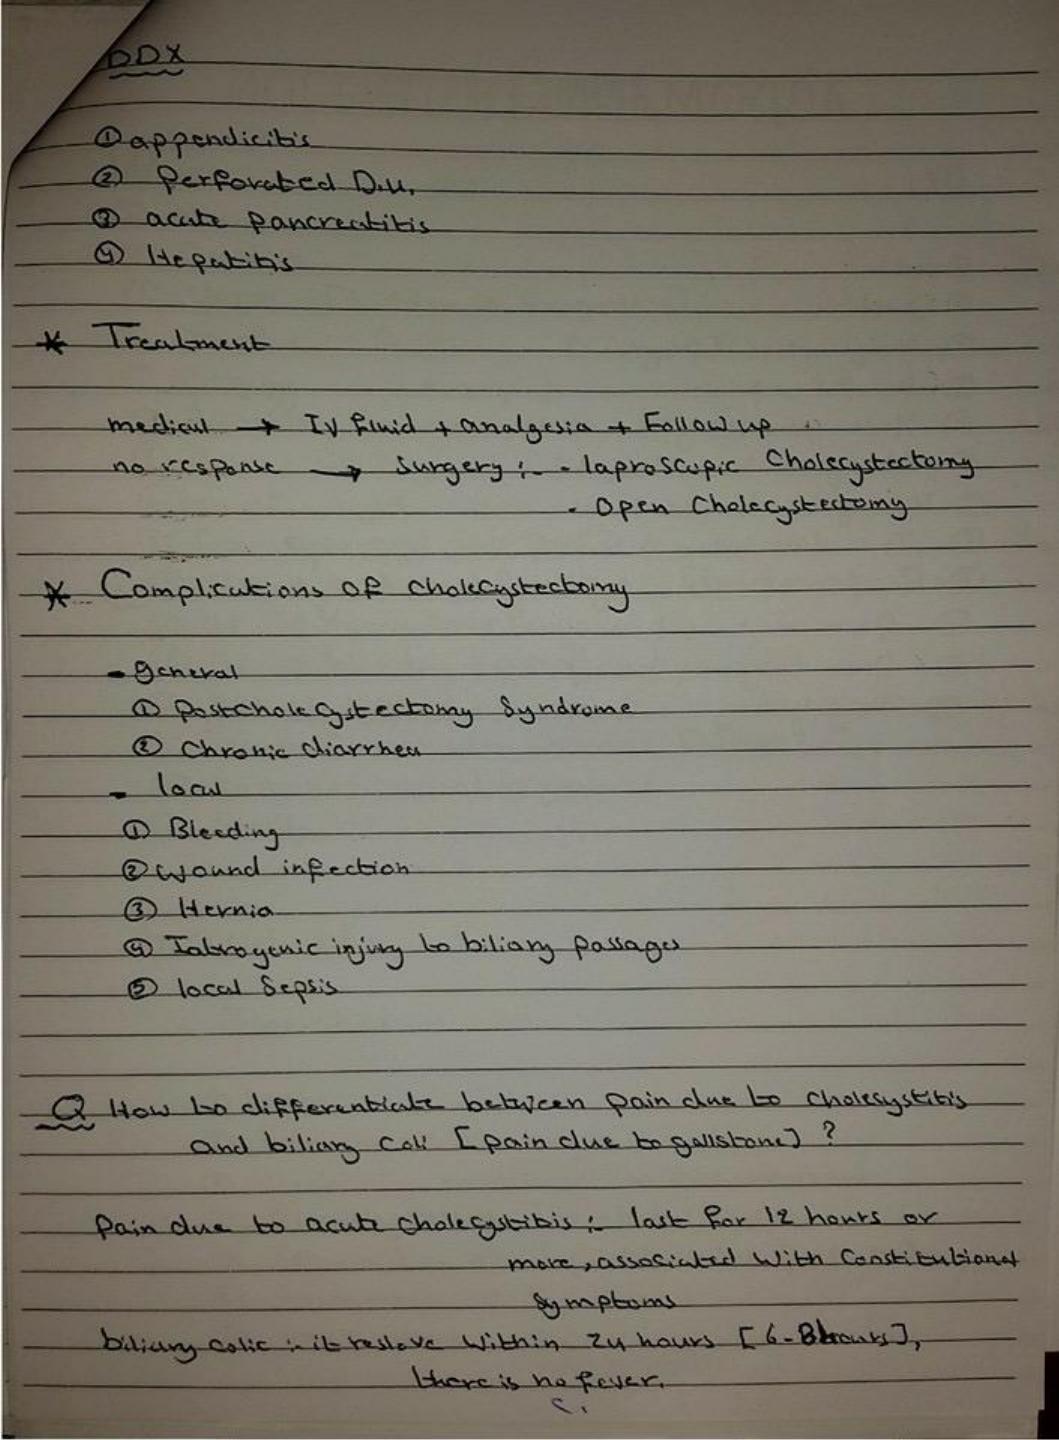 DDX
① appendicitis
② Perforated D.u.
③ acute pancreatitis
④ Hepatitis
* Treatment
medical → IV fluid + analgesia + Follow up
no response → Surgery :- - laproscopic Cholecystectomy
- Open Cholecystectomy
* Complications of cholecystectomy
- general
① Postcholecystectomy Syndrome
② Chronic diarrhea
- local
① Bleeding
② wound infection
③ Hernia
④ Iatrogenic injury to biliary passages
⑤ local Sepsis
Q How to differentiate between pain due to cholecystitis
and biliary coli [pain due to gallstone] ?
Pain due to acute cholecystitis :- last for 12 hours or
more, associated with Constitutional
Symptoms
biliary colic :- it reslove within 24 hours [6-8 hours],
there is no fever.